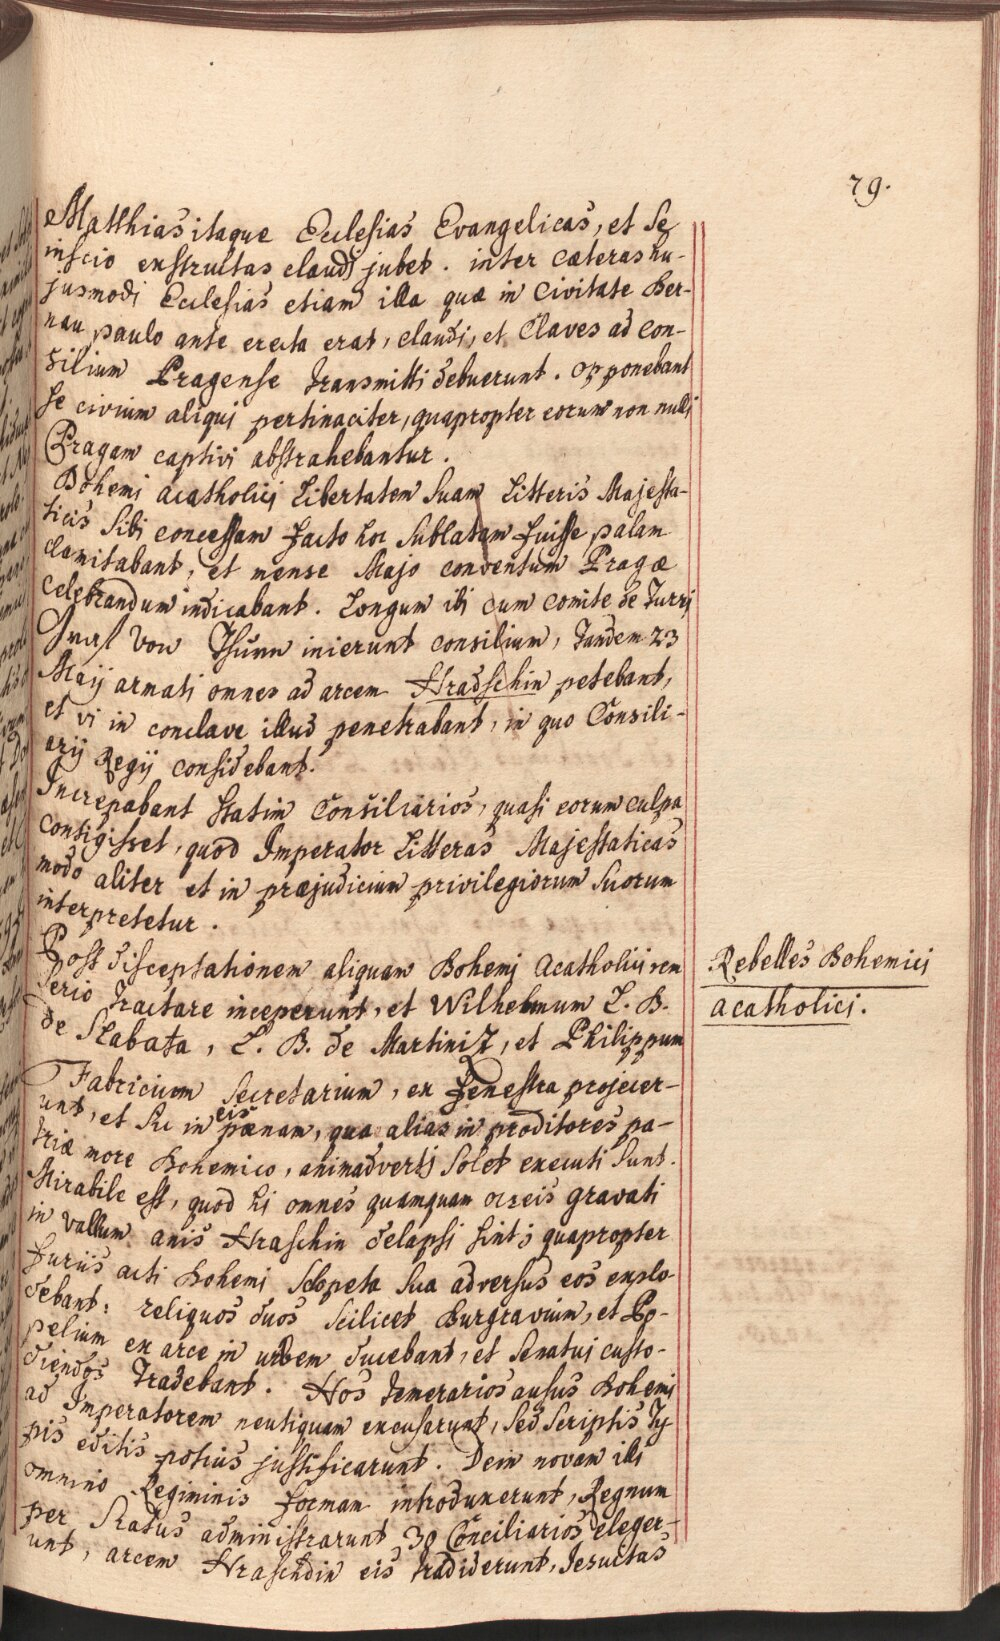 79.
Matthias itaque Ecclesias Evangelicas, et se
inscio exstructas claudi jubet. inter cæteras hu-
jusmodi Ecclesias etiam illa quæ in Civitate Ber-
nau paulo ante erecta erat, claudi, et Claves ad con-
silium Pragense transmitti debuerunt. opponebant
se civium aliqui pertinaciter, quapropter eorum non nulli
Pragam captivi abstrahebantur.
Bohemi acatholici Libertatem suam Litteris Majesta-
ticis sibi concessam facto hoc sublatam fuisse palam
clamitabant, et mense Majo conventum Pragæ
celebrandum indicabant. Longum ibi cum comite de Turri
Graf von Thurn inierunt consilium, tandem 23
Maij armati omnes ad arcem Hradschin petebant,
et vi in conclave illud penetrabant, in quo Consili-
arij Regij considebant.
Increpabant statim Consiliarios, quasi eorum culpa
contigisset, quod Imperator Litteras Majestaticas
modo aliter et in præjudicium privilegiorum suorum
interpretetur.
Post disceptationem aliquam Bohemi Acatholici rem
serio tractare inceperunt, et Wilhelmum L. B.
de Slabata, L. B. de Martiniz, et Philippum
Fabricium Secretarium, ex fenestra projecer-
unt, et sic in eis pœnam, qua alias in proditores pa-
triæ more Bohemico, animadverti solet executi sunt.
Mirabile est, quod hi omnes quamquam ocreis gravati
in vallum anis Hraschin delapsi sint; quapropter
furiis acti Bohemi sclopeta sua adversus eos explo-
debant: reliquos duos scilicet Burgravium, et Pop-
pelium ex arce in urbem ducebant, et senatui custo-
diendos tradebant. Hos temerarios ausus Bohemi
ad Imperatorem neutiquam excusarunt, sed scriptis Ty
pis editis potius justificarunt. Dein novam ibi
omnino Regiminis formam introduxerunt, Regnum
per Status administrarunt 30 Conciliarios eleger-
unt, arcem Hraschdin eis tradiderunt, Jesuitas
Rebelles Bohemici
acatholici.